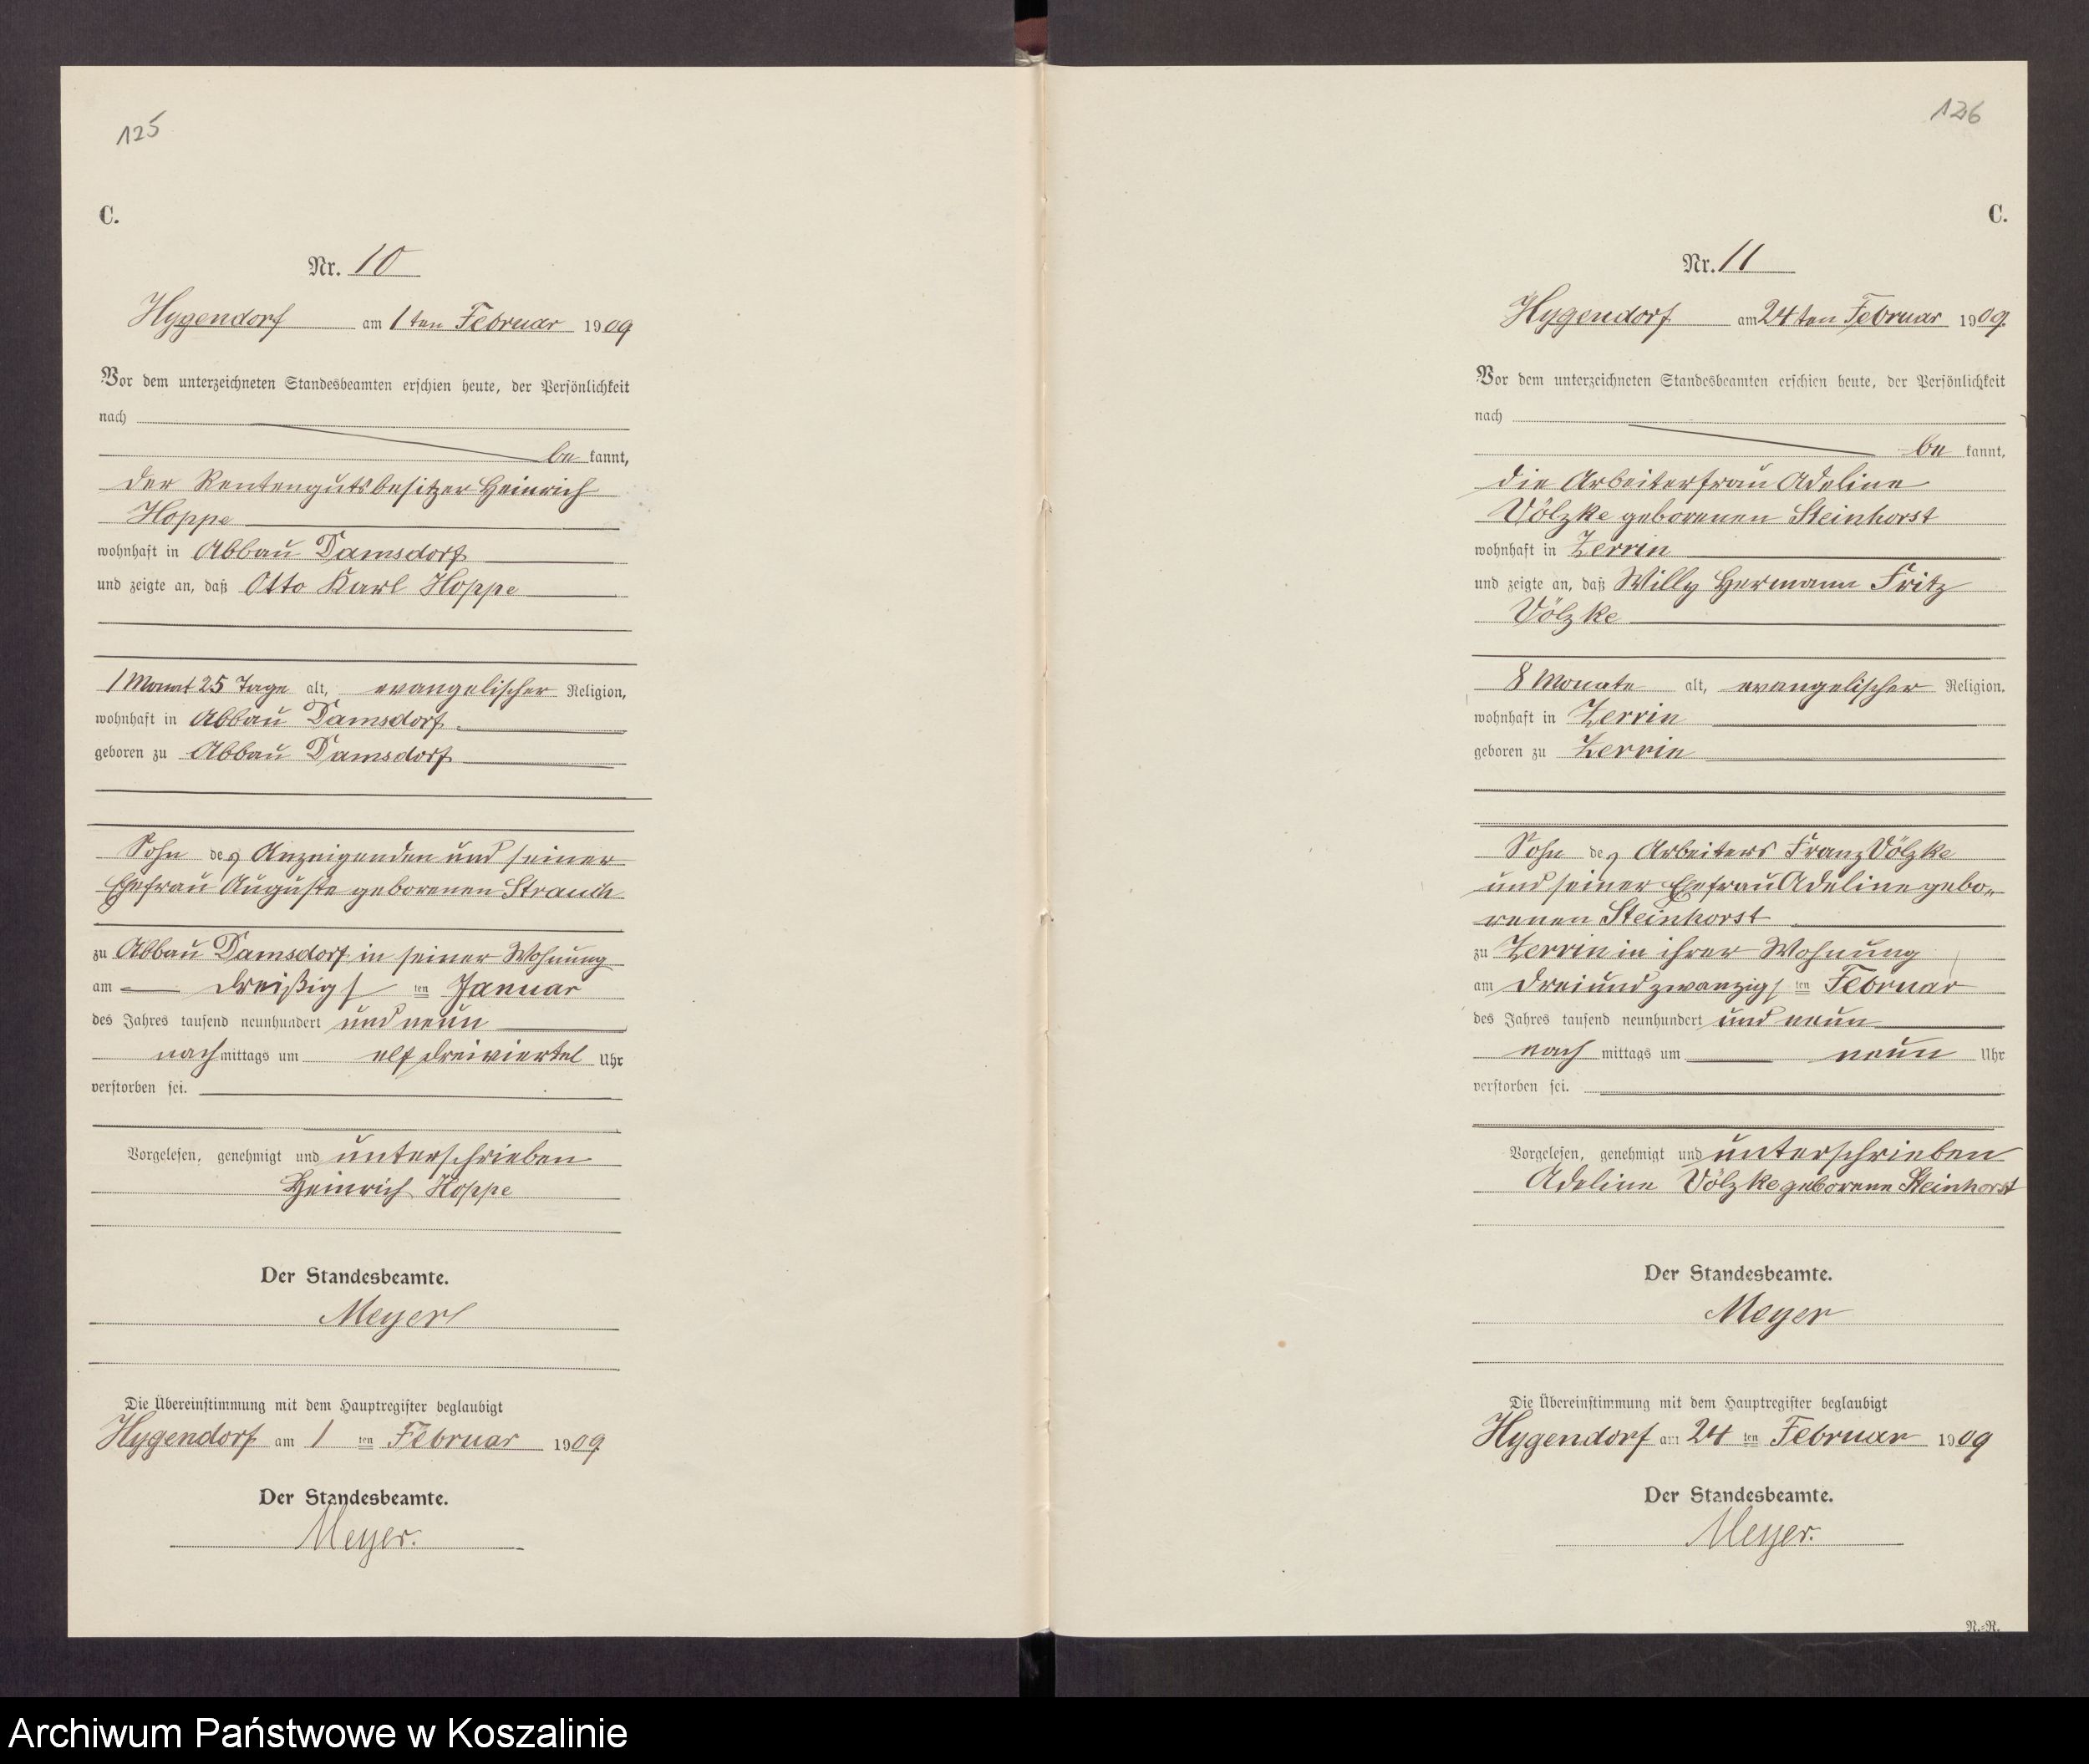 125
C.
Nr. 10
Hygendorf am 1ten Februar 1909
Vor dem unterzeichneten Standesbeamten erschien heute, der Persönlichkeit
nach
be kannt,
der Rentengutsbesitzer Heinrich
Hoppe
wohnhaft in Abbau Damsdorf
und zeigte an, daß Otto Karl Hoppe
1 Monat 25 Tage alt, evangelischer Religion,
wohnhaft in Abbau Damsdorf
geboren zu Abbau Damsdorf
Sohn des Anzeigenden und seiner
Ehefrau Auguste geborenen Strauch
zu Abbau Damsdorf in seiner Wohnung
am dreißigsten Januar
des Jahres tausend neunhundert und neun
nachmittags um elf dreiviertel Uhr
verstorben sei.
Vorgelesen, genehmigt und unterschrieben
Heinrich Hoppe
Der Standesbeamte.
Meyer
Die Übereinstimmung mit dem Hauptregister beglaubigt
Hygendorf am 1 ten Februar 1909.
Der Standesbeamte.
Meyer.
126
C.
Nr. 11
Hygendorf am 24ten Februar 1909.
Vor dem unterzeichneten Standesbeamten erschien heute, der Persönlichkeit
nach
be kannt,
die Arbeiterfrau Adeline
Völzke geborenen Steinhorst
wohnhaft in Zerrin
und zeigte an, daß Willy Hermann Fritz
Völzke
8 Monate alt, evangelischer Religion,
wohnhaft in Zerrin
geboren zu Zerrin
Sohn des Arbeiters Franz Völzke
und seiner Ehefrau Adeline gebo-
renen Steinhorst
zu Zerrin in ihrer Wohnung
am dreiundzwanzigsten Februar
des Jahres tausend neunhundert und neun
nach mittags um neun Uhr
verstorben sei.
Vorgelesen, genehmigt und unterschrieben
Adeline Völzke geborene Steinhorst
Der Standesbeamte.
Meyer
Die Übereinstimmung mit dem Hauptregister beglaubigt
Hygendorf am 24 ten Februar 1909
Der Standesbeamte.
Meyer.
N.-R.
Archiwum Państwowe w Koszalinie